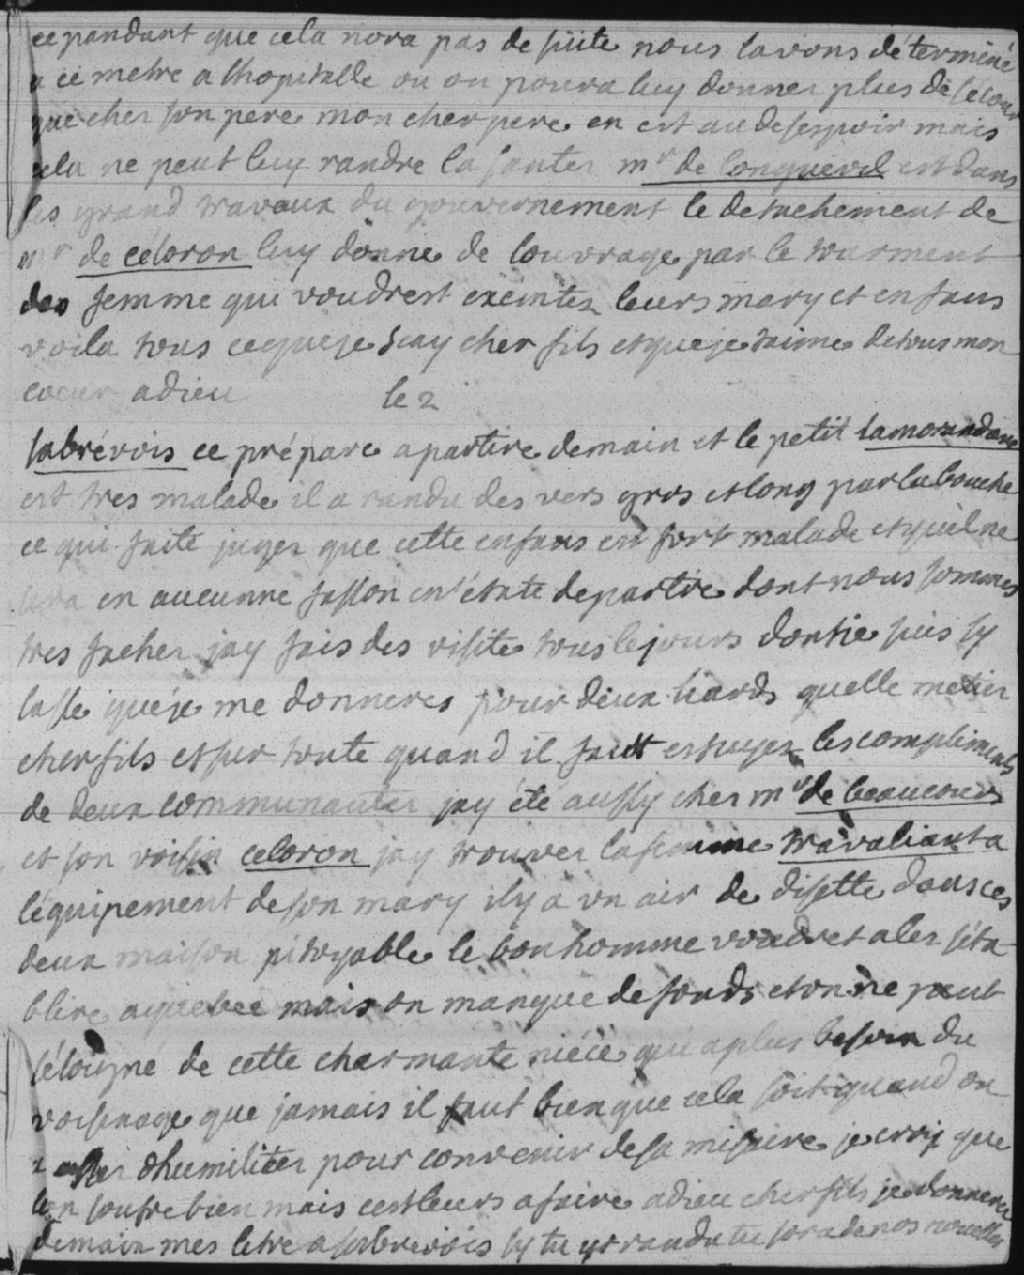 ce pandant que cela nora pas de suite nous lavons déterminé
a ce metre a lhopitalle ou on poura luy donner plus de secour
que cher son pere mon cher pere en est au desespoir mais
cela ne peut luy randre la santer mr de longueuil est dans
les grand travaux du gouvernement le detachement de
mr de celoron luy donne de louvrage par le tourment
des femme qui voudrest exemter leurs mary et enfans
voila tous ceque je scay cher fils et que je taime de tous mon
coeur adieu le 2
sabrévois ce prépare a partire demain et le petit lamorandiere
est tres malade il a randu des vers gros et long par la bouche
ce qui faite juger que cette enfans est fort malade et quil ne
sera en aucunne fasson en état departire dont nous sommes
tres facher jay fais des visite tous le jours dont je suis sy
lasse que je me donneres pour deux liards quelle metier
cher fils et sur toute quand il faut essuyer les compliments
de deux communauter jay été aussy cher mr de beaucours
et son voisin celoron jay trouver la femme travaliant a
léquipement de son mary il y a un air de disette dans ces
deux maison pitoyable le bon homme voudret aler séta
blire a quebec mais on manque de fonds et on ne peut
séloigné de cette charmante niéce qui a plus besoin du
voisinage que jamais il faut bien que cela soit quand on
a dhumiliter pour convenir de sa misaire je croy que
lon soufre bien mais cest leurs afaire adieu cher fils je donnerei
demain mes letre a sabrevois sy tu randu tu sora de nos nouvelles